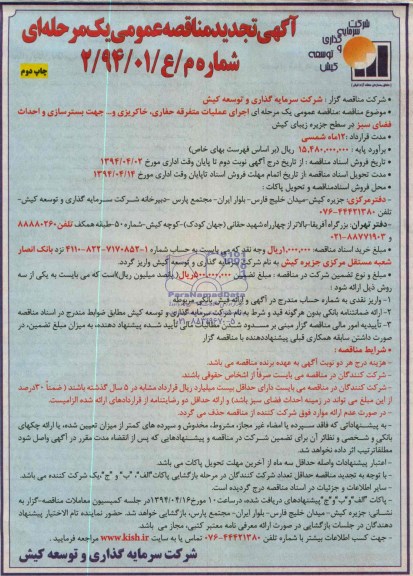 آگهی تجدید مناقصه عمومی یک مرحله‌ای
شماره م/ع/۲/۹۴/۰۱
چاپ دوم
شرکت
سرمایه
گذاری
و
توسعه
کیش
• شرکت مناقصه گزار : شرکت سرمایه گذاری و توسعه کیش
• موضوع مناقصه: مناقصه عمومی یک مرحله ای اجرای عملیات متفرقه حفاری، خاکریزی و... جهت بسترسازی و احداث
فضای سبز در سطح جزیره زیبای کیش
• مدت قرارداد :۱۲ماه شمسی
• برآورد پایه : ۱۵،۴۸۰،۰۰۰،۰۰۰ ریال (بر اساس فهرست بهای خاص)
• تاریخ فروش اسناد مناقصه : از تاریخ درج آگهی نوبت دوم تا پایان وقت اداری مورخ ۱۳۹۴/۰۴/۰۲
• مدت تحویل اسناد مناقصه: از تاریخ اتمام مهلت فروش اسناد تاپایان وقت اداری مورخ ۱۳۹۴/۰۴/۱۴
• محل فروش اسنادمناقصه و تحویل پاکات :
-دفترمرکزی: جزیره کیش-میدان خلیج فارس- بلوار ایران- مجتمع پارس -دبیرخانه شرکت سرمایه گذاری و توسعه کیش-
تلفن ۴۴۴۲۱۳۸۰-۰۷۶
-دفتر تهران: بزرگراه آفریقا-بالاتر از چهارراه شهید حقانی (جهان کودک) -کوچه کیش-شماره ۵۰-طبقه همکف تلفن ۸۸۸۸۰۲۶۰
و ۸۸۷۷۱۹۰۳-۰۲۱
• مبلغ خرید اسناد مناقصه: ۱،۰۰۰،۰۰۰ریال وجه نقد که می بایست به حساب شماره ۱-۷۱۷۰۸۵۲-۸۲۲-۴۱۱۰ نزد بانک انصار
شعبه مستقل مرکزی جزیره کیش به نام شرکت سرمایه گذاری و توسعه کیش واریز گردد.
• مبلغ و نوع تضمین شرکت در مناقصه : مبلغ تضمین ۵۰۰،۰۰۰،۰۰۰ریال( پانصد میلیون ریال)است که می بایست به یکی از سه
روش ذیل ارائه شود :
۱- واریز نقدی به شماره حساب مندرج در آگهی و ارائه فیش بانکی مربوطه
۲- ارائه ضمانتنامه بانکی بدون هرگونه قید و شرط به نام شرکت سرمایه گذاری و توسعه کیش مطابق ضوابط مندرج در اسناد مناقصه
۳- تأییدیه امور مالی مناقصه گزار مبنی بر مسدود شدن مطالبات مالی تأیید شده پیشنهاد دهنده به میزان مبلغ تضمین، در
صورت داشتن سابقه همکاری قبلی پیشنهاددهنده با مناقصه گزار
• شرایط مناقصه :
- هزینه درج هر دو نوبت آگهی به عهده برنده مناقصه می باشد.
- شرکت کنندگان در مناقصه می بایست صرفاً از اشخاص حقوقی باشند.
- شرکت کنندگان در مناقصه می بایست دارای حداقل بیست میلیارد ریال قرارداد مشابه در ۵ سال گذشته باشند (ضمناً ۳۰درصد
از این مبلغ می تواند در زمینه احداث فضای سبز باشد) و ارائه حداقل دو رضایتنامه از قراردادهای ارائه شده الزامیست.
- در صورت عدم ارائه موارد فوق شرکت کننده از مناقصه حذف می گردد.
- به پیشنهاداتی که فاقد سپرده یا امضاء، غیر مجاز، مشروط، مخدوش و سپرده های کمتر از میزان تعیین شده، یا ارائه چکهای
بانکی و شخصی و نظائر آن برای تضمین شرکت در مناقصه و پیشنهادهایی که پس از انقضاء مدت مقرر در آگهی واصل شود
مطلقاترتیب اثر داده نخواهد شد.
- اعتبار پیشنهادات واصله حداقل سه ماه از آخرین مهلت تحویل پاکات می باشد.
- با توجه به تجدید مناقصه حداقل تعداد شرکت کنندگان در مرحله بازگشایی پاکات"الف"، "ب" و "ج"یک شرکت کننده می باشد.
- سایر اطلاعات و جزئیات در اسناد مناقصه درج گردیده است.
- پاکات "الف"و"ب"و"ج"پیشنهادهای دریافت شده، درساعت ۱۰ مورخ۱۳۹۴/۰۴/۱۶در جلسه کمیسیون معاملات مناقصه-گزار به
نشانی: جزیره کیش- میدان خلیج فارس- بلوار ایران- مجتمع پارس، بازگشایی خواهد شد. حضور نماینده تام الاختیار پیشنهاد
دهندگان در جلسات بازگشایی در صورت ارائه معرفی نامه معتبر کتبی، مجاز می باشد.
- جهت کسب اطلاعات بیشتر با شماره تلفن ۴۴۴۲۱۳۸۰-۰۷۶ تماس یا به سایت www.kish.ir مراجعه فرمایید .
شرکت سرمایه گذاری و توسعه کیش